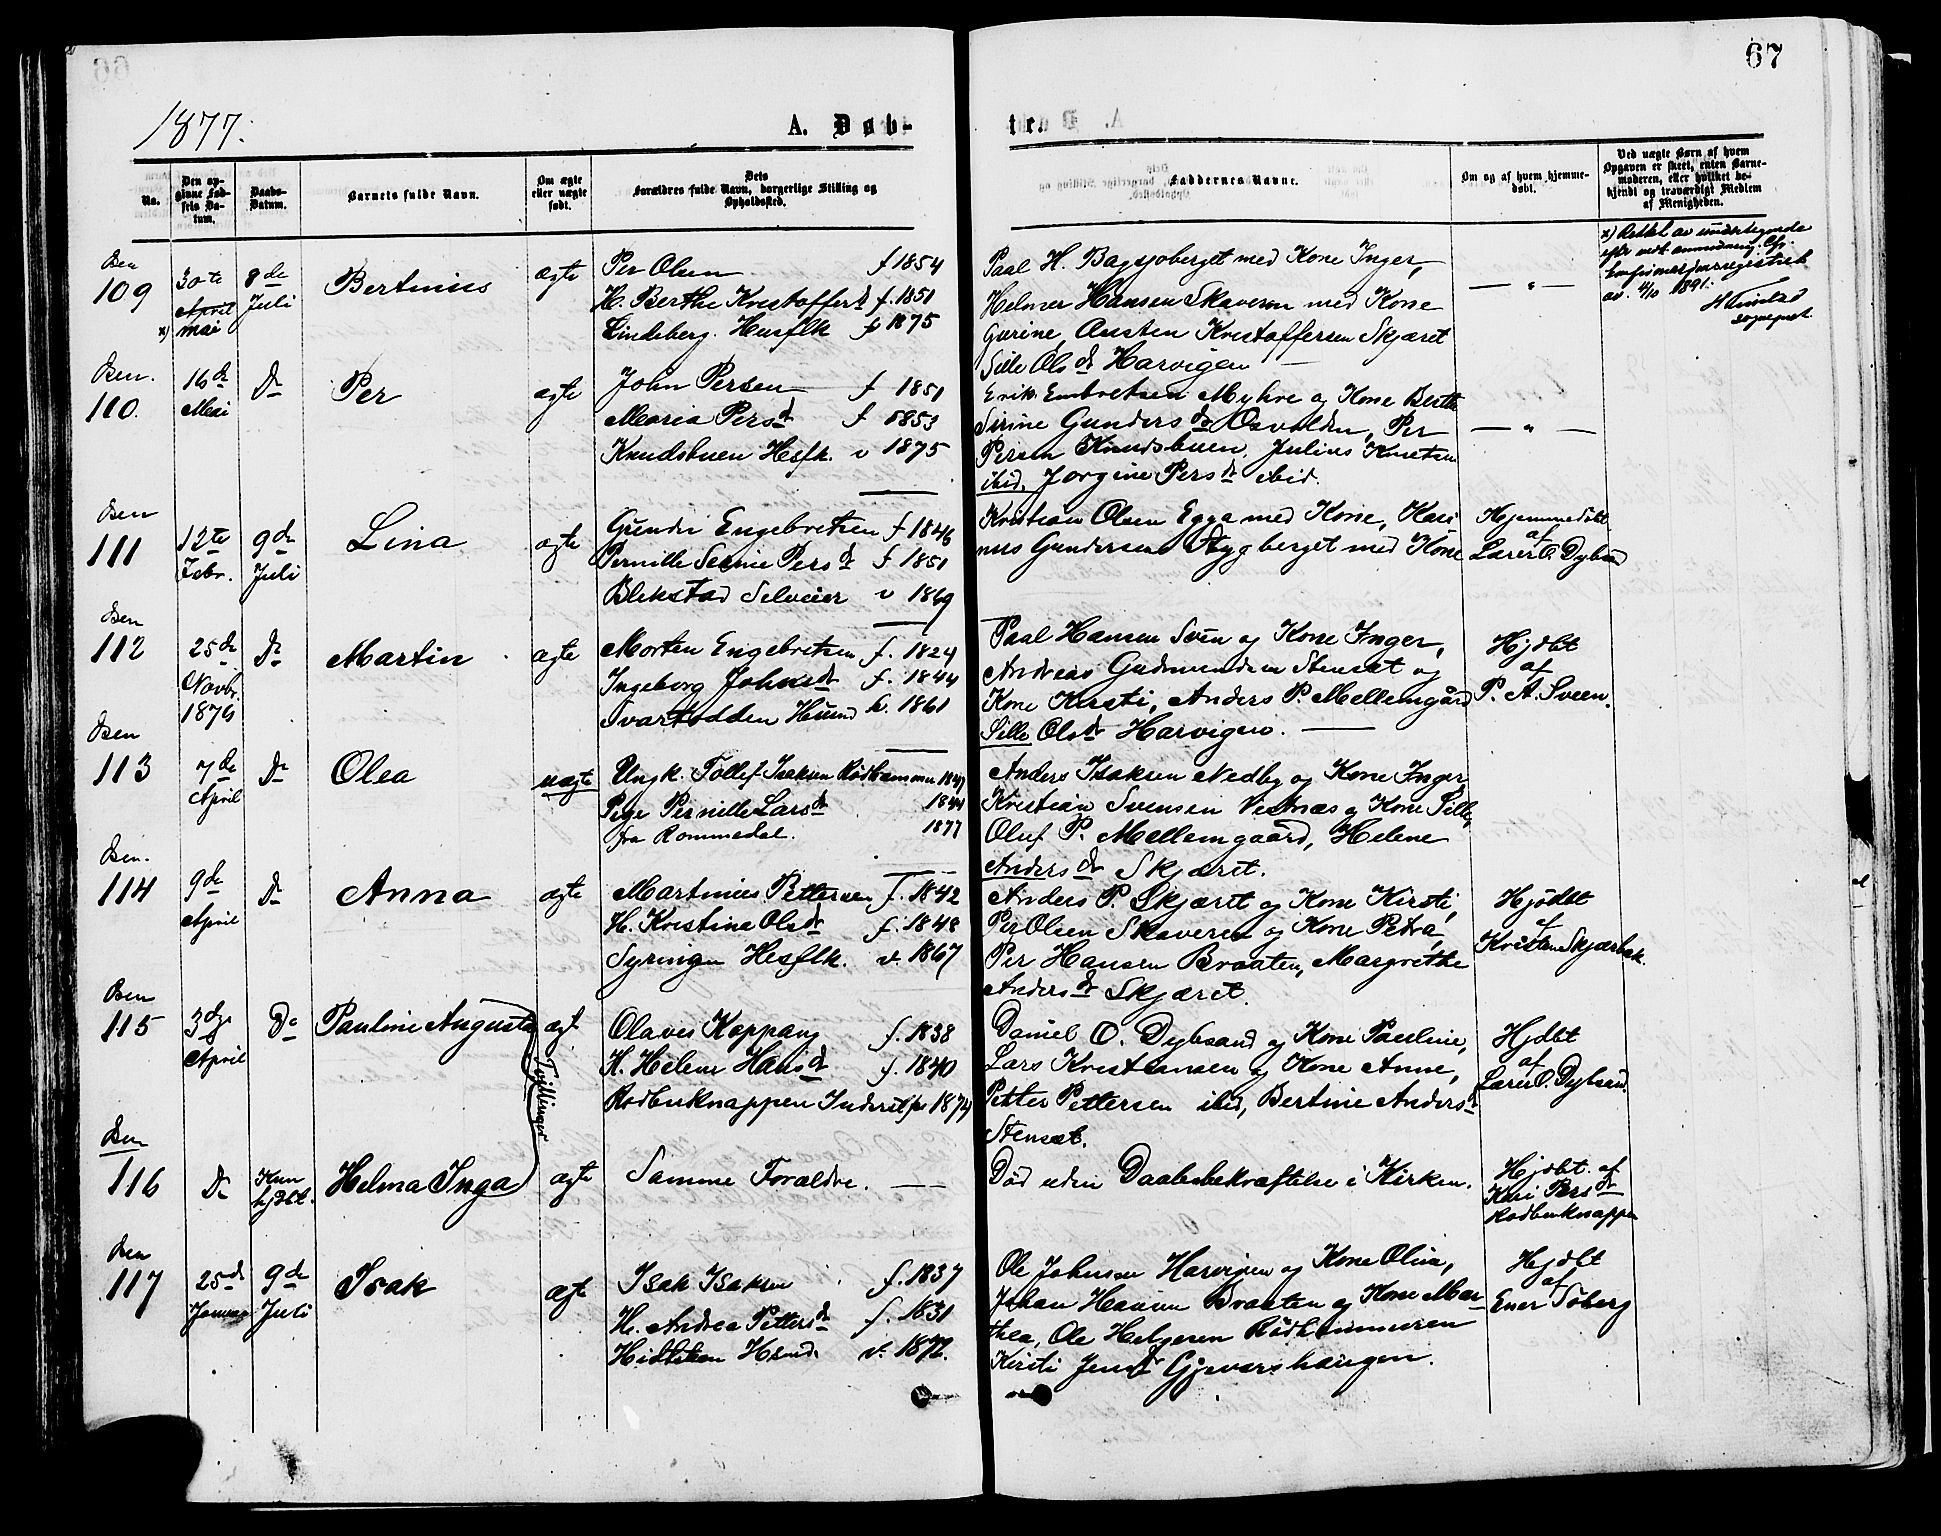 67
1877.
A. Døb-
te.
No.
Den op-
givne Fød-
sels Da-
tum.
Daabs-
Datum.
Barnets fulde Navn.
Om ægte
eller uægte
født.
Dets
Forældres fulde Navn, borgerlige Stilling og
Opholdssted.
Faddernes Navne.
Om og af hvem hjemme-
døbt.
Ved uægte Børn af hvem
Opgaven er skeet, enten Barne-
moderen, eller hvilket be-
kjendt og troværdigt Medlem
af Menigheden.
109
30te
April
x) mai
8de
Juli
Bertinius
ægte
Per Olsen f 1854
H. Berthe Kristoffersd f. 1851
Lindeberg. Husflk 1875
Paal H. Bagsjoberget med Kone Inger,
Helmer Hansen Skaveren med Kone
Gurine, Austen Kristoffersen Skjæret
Sille Olsd Harvigen
x) Rettet av undertegnede
av. 4/10 1891.
sognepr.
110.
16de
Mai
Do
Per
ægte
John Persen f 1851
Maria Persd f 1853
Knudsbuen Hsfk. v 1875
Erik Embretsen Myhre og Kone Berthe
Sirine Gundersd Osvolden, Per
Persen Knudsbuen, Julius Knutsen
ibid. Jorgine Persd ibid.
111
12te
Febr.
9de
Juli
Lina
ægte
Gunder Engebretsen f 1846
Pernille Serine Persd f 1851
Blekstad Selveier v 1869
Kristian Olsen Egga med Kone, Hari-
nus Gundersen Stygberget med Kone
Hjemmedøbt
af
Lærer O. Dybsand
112
25de
Novbr.
1876
Do
Martin
ægte
Morten Engebretsen f. 1824
Ingeborg Johnsd f. 1844
Svartodden Husmd v. 1861
Paal Hansen Sveen og Kone Inger,
Andreas Gudmundsen Stenset og
Kone Kirsti, Anders P. Mellemgård
Sille Olsd Harvigen.
Hjdbt
af
P. A. Sveen.
113
7de
April
Do
Olea
uægte
Ungk. Tollef Isaksen Rødhammer 1847
Pige Pernille Larsd 1844
fra Rommedal. 1877
Anders Isaksen Nedby og Kone Inger
Kristian Svensen Vestnæs og Kone Sille,
Oluf P. Mellemgaard, Helene
Andersd Skjæret.
114
9de
April
Do
Anna
ægte
Martinius Pettersen f. 1842
H. Kristina Olsd f. 1848
Syringen Hesflk. v. 1867
Anders P. Skjæret og Kone Kirsti,
Per Olsen Skaveren og Kone Petra,
Per Hansen Braaten, Margrethe
Andersd Skjæret.
Hjødbt
af
Kristen Skjærbek.
115
3die
April
Do
Pauline Augusta
Tvillinger
ægt.
Olaves Koppang f. 1838
H. Helene Hansd f. 1840
Rødbuknappen Inderst v 1874
Daniel O. Dybsand og Kone Pauline,
Lars Kristiansen og Kone Anne,
Petter Pettersen ibid, Bertine Andersd
Stenset.
Hjdbt
af
Lærer O. Dybsand.
116
Do
Kun
hjdbt.
Helma Inga
ægte
Samme Forældre.
Død uden Daabsbekræftelse i Kirken.
Hjdbt. af
Kari Persd
Rødbuknappen
117
25de
Januar
9de
Juli
Isak
ægte
Isak Isaksen f. 1837
H. Andrea Pettersd f. 1831
Husmd v. 1872.
Ole Johnsen Harvigen og Kone Olina,
Johan Hansen Braaten og Kone Mar-
thea, Ole Helgesen Rødhammeren
Kirsti Jensd Gjevarshaugen.
Hjdbt
af
Ener Toberg